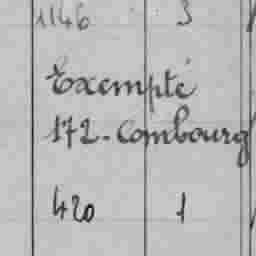 1146 3
Exempté
172-Combourg
420 1